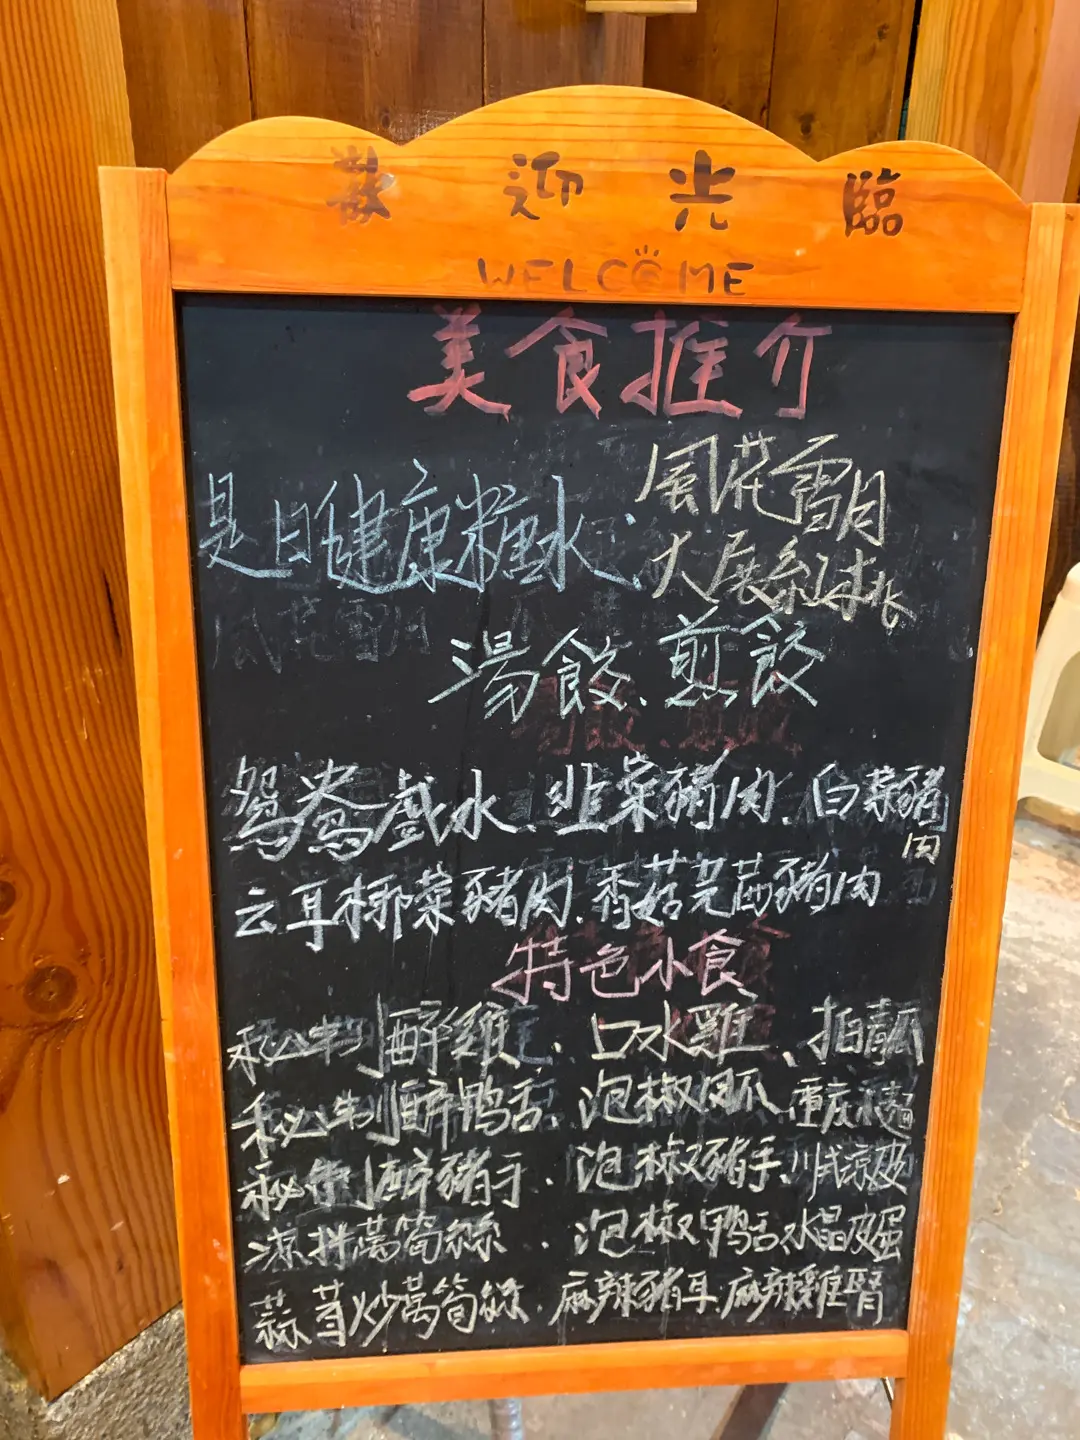 歡迎光臨
WELCOME
美食推介
是日健康糖水：
風花雪月
大展紅桃
湯餃、煎餃
鴛鴦戲水、韭菜豬肉、白菜豬肉
云耳椰菜豬肉、香菇芫茜豬肉
特色小食
秘制醉雞、口水雞、拍青瓜
秘制醉鴨舌、泡椒鳳爪、重慶
秘制醉豬手、泡椒豬手、川式涼皮
涼拌萵筍絲、泡椒鴨舌、水晶皮蛋
蒜茸炒萵筍絲、麻辣豬耳、麻辣雞腎